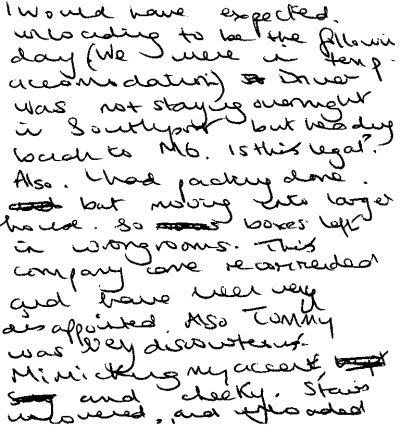 I would have expected.
unloading to be the followin
day (we were in temp.
accomodation) Driver
was not staying overnight
in Southport but heading
back to M6. Is this legal?
Also. I had packing done.
but moving into larger
house. So boxes left
in wrong rooms. This
company came recommended
and have been very
disappointed. Also Tommy
was very discourteous.
Mimicking my accent,
and cheeky. Stairs
uncovered, and unloaded